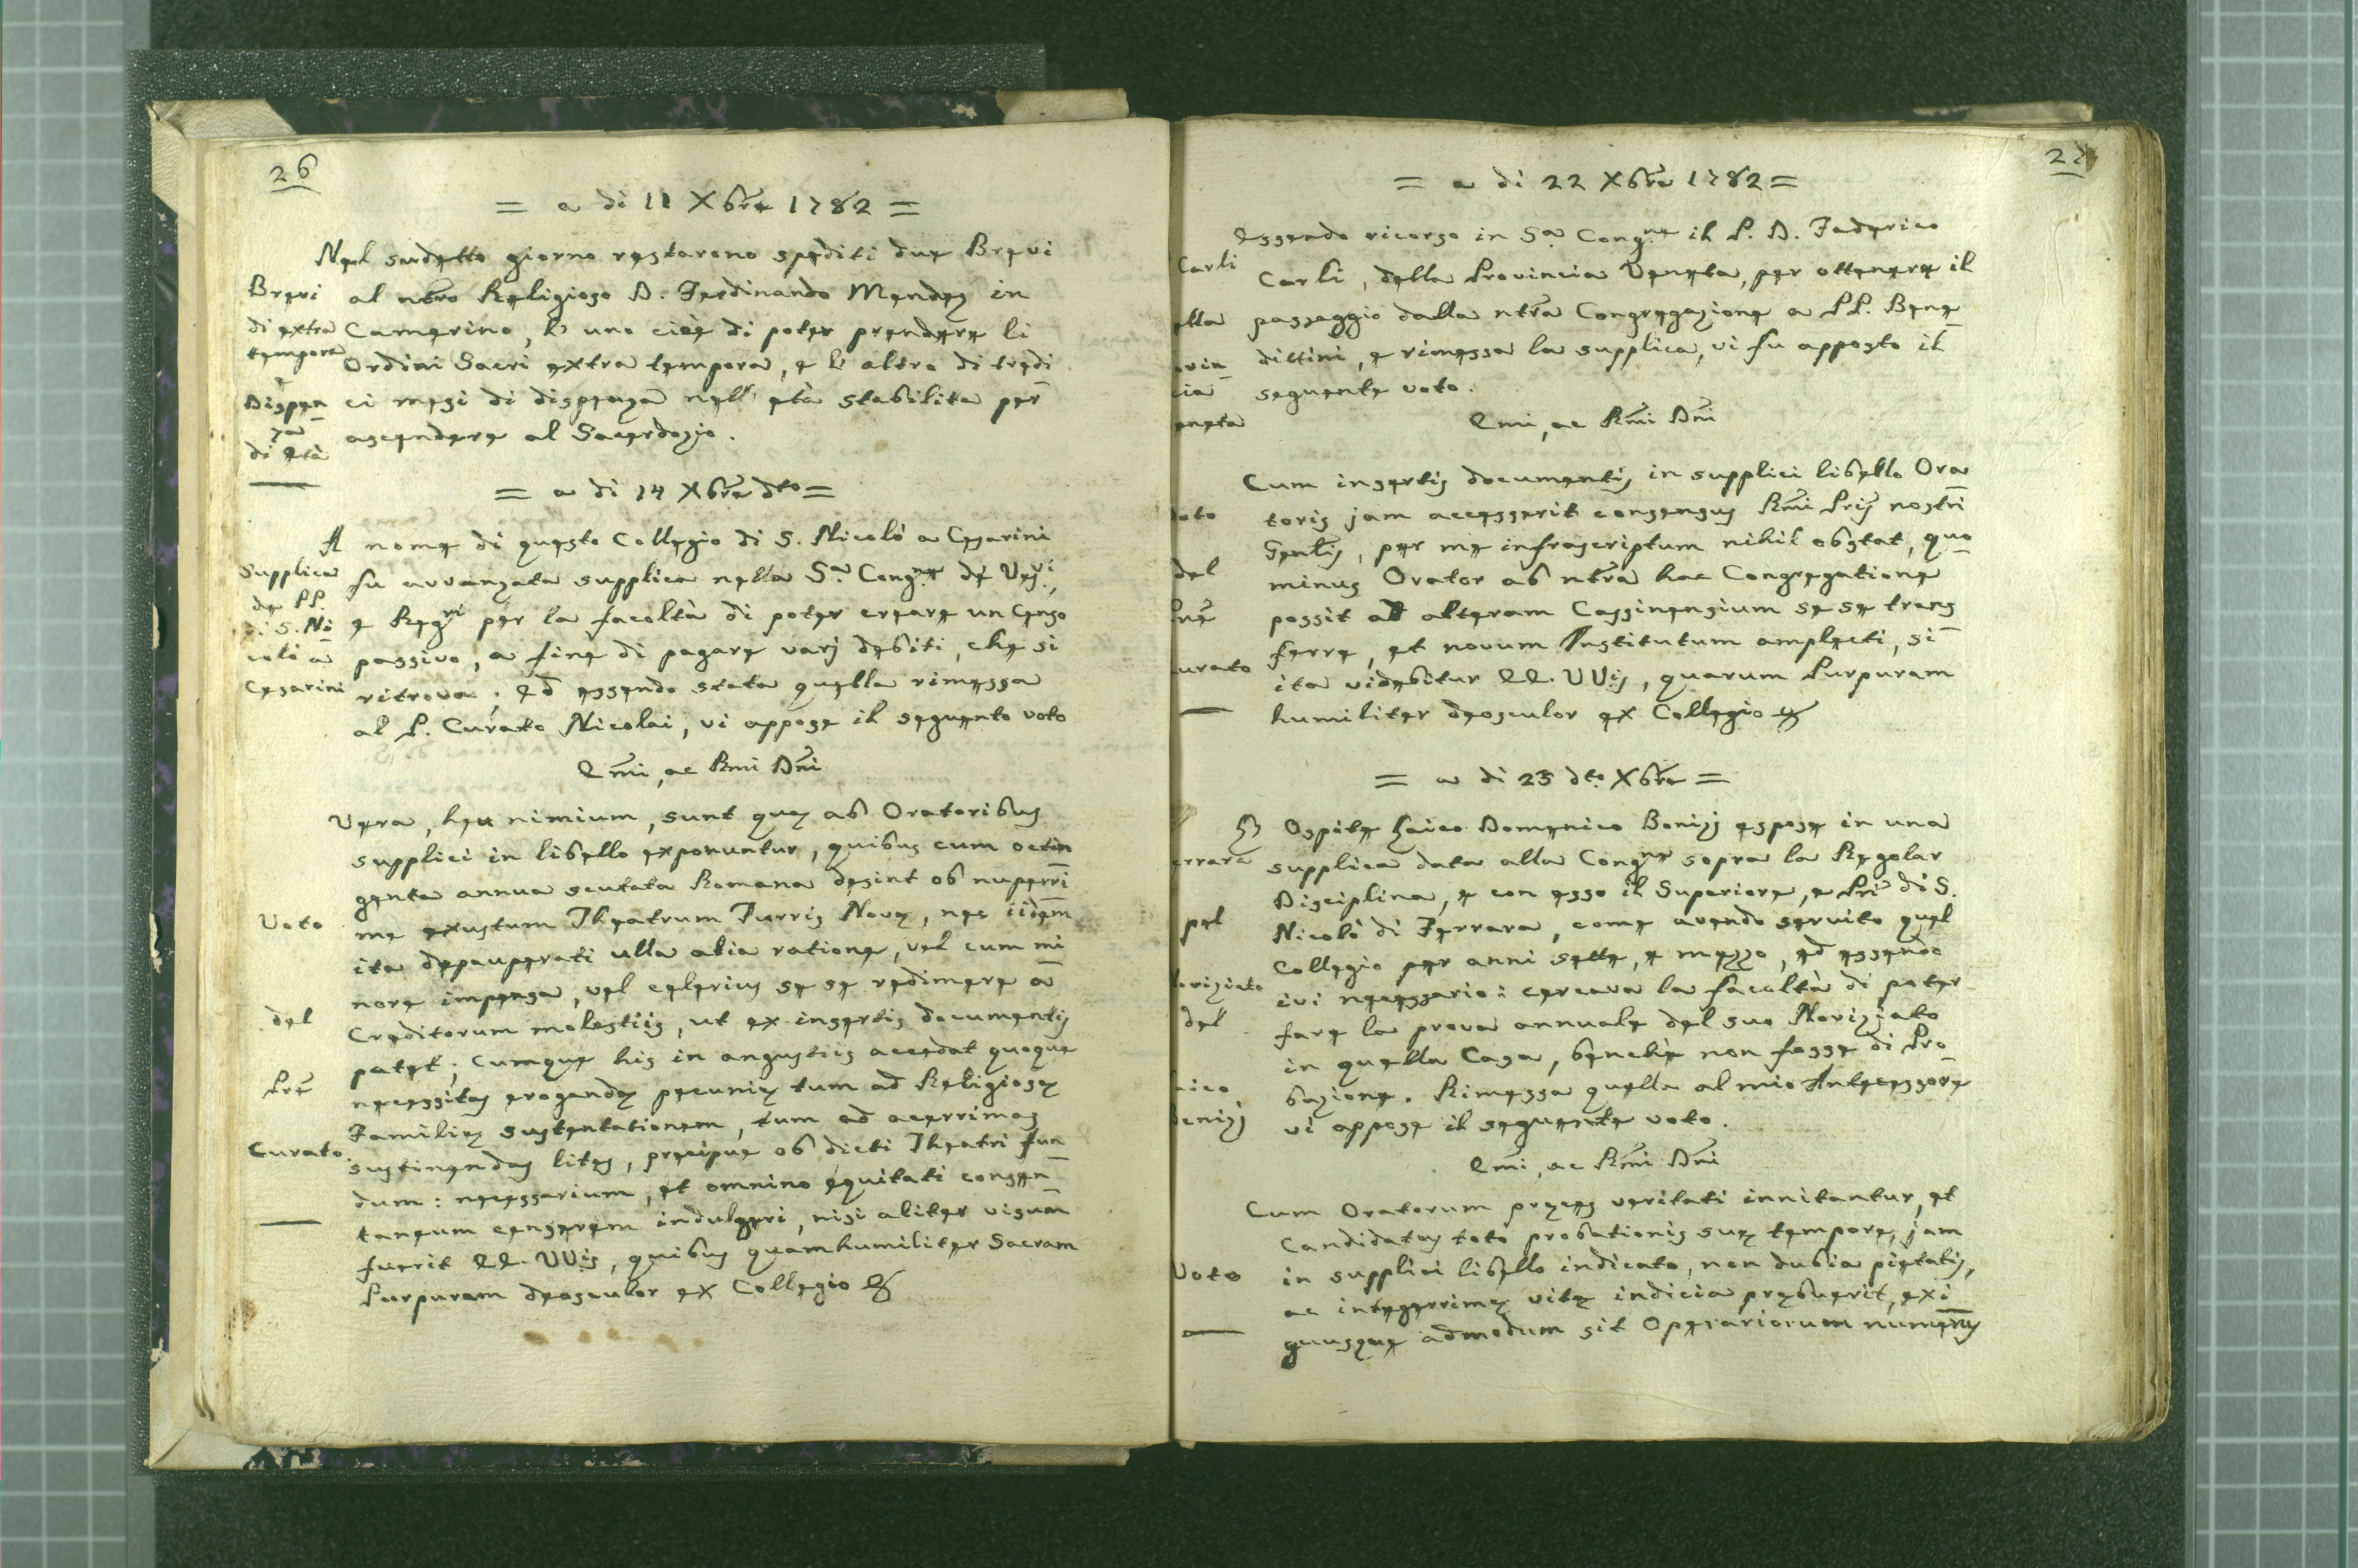 26
= a di 11 Xbre 1782 =
Nel sudetto giorno restarono spediti due Brevi
al ntro Religioso D. Ferdinando Mendez in
Camerino, l' uno cioè di poter prendere li
Ordini Sacri extra tempora, e l' altro di tredi
ci mesi di dispenza nell' età stabilita per
ascendere al Sacerdozio.
Brevi
di extra
tempora
e
Dispen
za
di età
= a di 14 Xbre dto =
A nome di questo Collegio di S. Nicolò a Cesarini
fu avvanzata supplica nella Sa Congne de Vesvi,
e Regri per la facoltà di poter creare un Censo
passivo, a fine di pagare varj debiti, che si
ritrova; ed essendo stata quella rimessa
al P. Curato Nicolai, vi appose il seguente voto
Supplica
de PP.
di S. Ni
colò a
Cesarini
Emi, ac Rmi Dni
Vera, heu nimium, sunt quę ab Oratoribus
supplici in libello exponuntur, quibus cum octin
genta annua scutata Romana desint ob nuperri
me exustum Theatrum Turris Novę, nec iidem
ita depauperati ulla alia ratione, vel cum mi
nore impensa, vel celerius se se redimere a
Creditorum molestiis, ut ex insertis documentis
patet; Cumque his in angustiis accedat quoque
necessitas erogandę pecunię tum ad Religiosę
Familię sustentationem, tum ad acerrimas
sustinendas lites, precipue ob dicti Theatri fun
dum: necessarium, et omnino equitati consen
taneum censerem indulgeri, nisi aliter visum
fuerit EE. VVis, quibus quamhumiliter Sacram
Purpuram deosculor ex Collegio &
Voto
del
Pre
Curato
27
= a di 22 Xbre 1782 =
Essendo ricorso in Sa Congne il P. D. Federico
Carli, della Provincia Veneta, per ottenere il
passaggio dalla ntra Congregazione a PP. Bene
dittini, e rimessa la supplica, vi fu apposto il
seguente voto.
Carli
ella
ovin
cia
eneta
Emi, ac Rmi Dni
Cum insertis documentis in supplici libello Ora
toris jam accesserit consensus Rmi Pris nostri
Genlis, per me infrascriptum nihil obstat, quo
minus Orator ab ntra hac Congregatione
possit ad alteram Cassinensium se se trans
ferre, et novum Institutum amplecti, si
ita videbitur EE. VVis, quarum Purpuram
humiliter deosculor ex Collegio &
Voto
del
Pre
urato
= a di 23 dto Xbre =
Ospite Laico Domenico Bonizj espose in una
supplica data alla Congne sopra la Regolar
Disciplina, e con esso il Superiore, e Pri di S.
Nicolò di Ferrara, come avendo servito quel
Collegio per anni sette, e mezzo, ed essendo
ivi necessario: cercava la facoltà di poter
fare la prova annuale del suo Novizjato
in quella Casa, benchè non fosse di Pro
bazione. Rimessa quella al mio Antecessore
vi appose il seguente voto.
errara
pel
ovizjato
del
aico
Bonizj
Emi, ac Rmi Dni
Cum Oratorum preces veritati innitantur, et
Candidatus toto probationis suę tempore, jam
in supplici libello indicato, non dubia pietatis,
ac integerrimę vitę indicia prębuerit, exi
guusque admodum sit Operariorum numerus
Voto